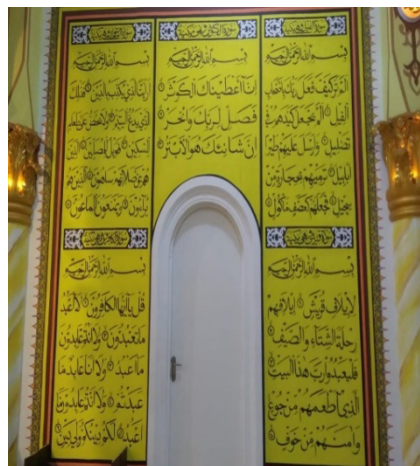 بسم الله الرحمن الرحيم
ألم تر كيف فعل ربك بأصحاب
الفيل ۝ ألم يجعل كيدهم في
تضليل ۝ وأرسل عليهم طيرا
أبابيل ۝ ترميهم بحجارة من
سجيل ۝ فجعلهم كعصف مأكول
بسم الله الرحمن الرحيم
لإيلاف قريش ۝ إيلافهم
رحلة الشتاء والصيف ۝
فليعبدوا رب هذا البيت ۝
الذي أطعمهم من جوع
وآمنهم من خوف ۝
بسم الله الرحمن الرحيم
إنا أعطيناك الكوثر ۝
فصل لربك وانحر ۝
إن شانئك هو الأبتر ۝
بسم الله الرحمن الرحيم
أرأيت الذي يكذب بالدين ۝ فذلك
الذي يدع اليتيم ۝ ولا يحض على طعام
المسكين ۝ فويل للمصلين ۝ الذين
هم عن صلاتهم ساهون ۝ الذين هم
يراءون ۝ ويمنعون الماعون ۝
بسم الله الرحمن الرحيم
قل يا أيها الكافرون ۝ لا أعبد
ما تعبدون ۝ ولا أنتم عابدون
ما أعبد ۝ ولا أنا عابد ما
عبدتم ۝ ولا أنتم عابدون ما
أعبد ۝ لكم دينكم ولي دين ۝